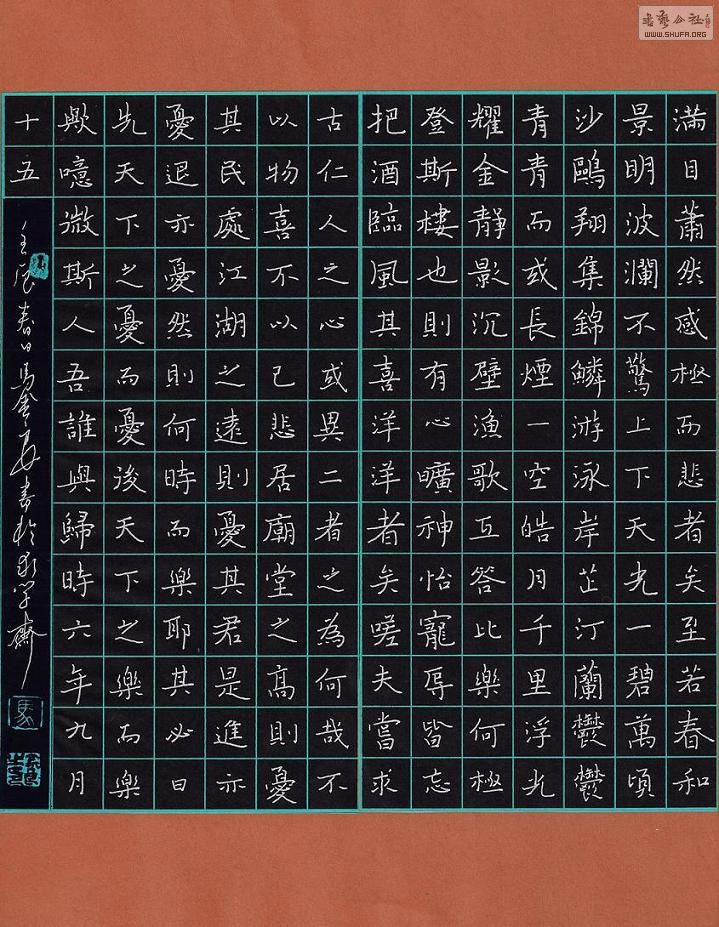 滿目蕭然感極而悲者矣至若春和
景明波瀾不驚上下天光一碧萬頃
沙鷗翔集錦鱗游泳岸芷汀蘭鬱鬱
青青而或長煙一空皓月千里浮光
耀金靜影沉壁漁歌互答此樂何極
登斯樓也則有心曠神怡寵辱皆忘
把酒臨風其喜洋洋者矣嗟夫嘗求
古仁人之心或異二者之為何哉不
以物喜不以己悲居廟堂之高則憂
其民處江湖之遠則憂其君是進亦
憂退亦憂然則何時而樂耶其必曰
先天下之憂而憂後天下之樂而樂
歟噫微斯人吾誰與歸時六年九月
十五
春日馬書於齋
馬
書藝公社
WWW.SHUFA.ORG